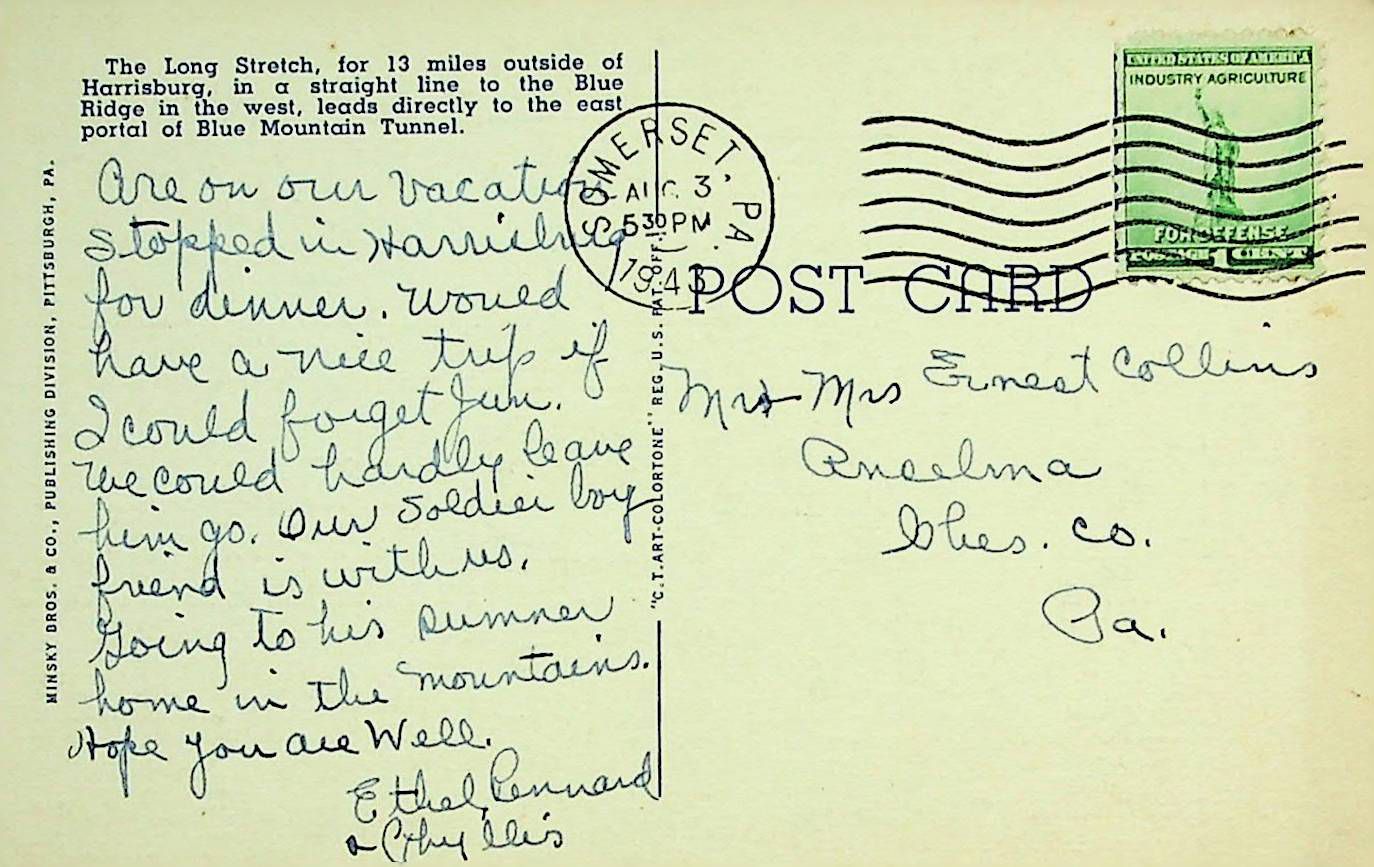 The Long Stretch, for 13 miles outside of
Harrisburg, in a straight line to the Blue
Ridge in the west, leads directly to the east
portal of Blue Mountain Tunnel.
Are on our vacation
Stopped in Harrisburg
for dinner. Would
have a nice trip if
I could forget Jim.
We could hardly leave
him go. Our Soldier boy
friend is with us.
Going to his summer
home in the mountains.
Hope you are Well.
Ethel, Lennard
& Phyllis
MINSKY BROS. & CO., PUBLISHING DIVISION, PITTSBURGH, PA.
"C.T. ART-COLORTONE" REG. U.S. PAT. OFF.
SOMERSET, PA.
AUG 3
530 PM
1943
UNITED STATES OF AMERICA
INDUSTRY AGRICULTURE
FOR DEFENSE
POSTAGE 1 CENT
POST CARD
Mr & Mrs Ernest Collins
Anselma
Ches. Co.
Pa.